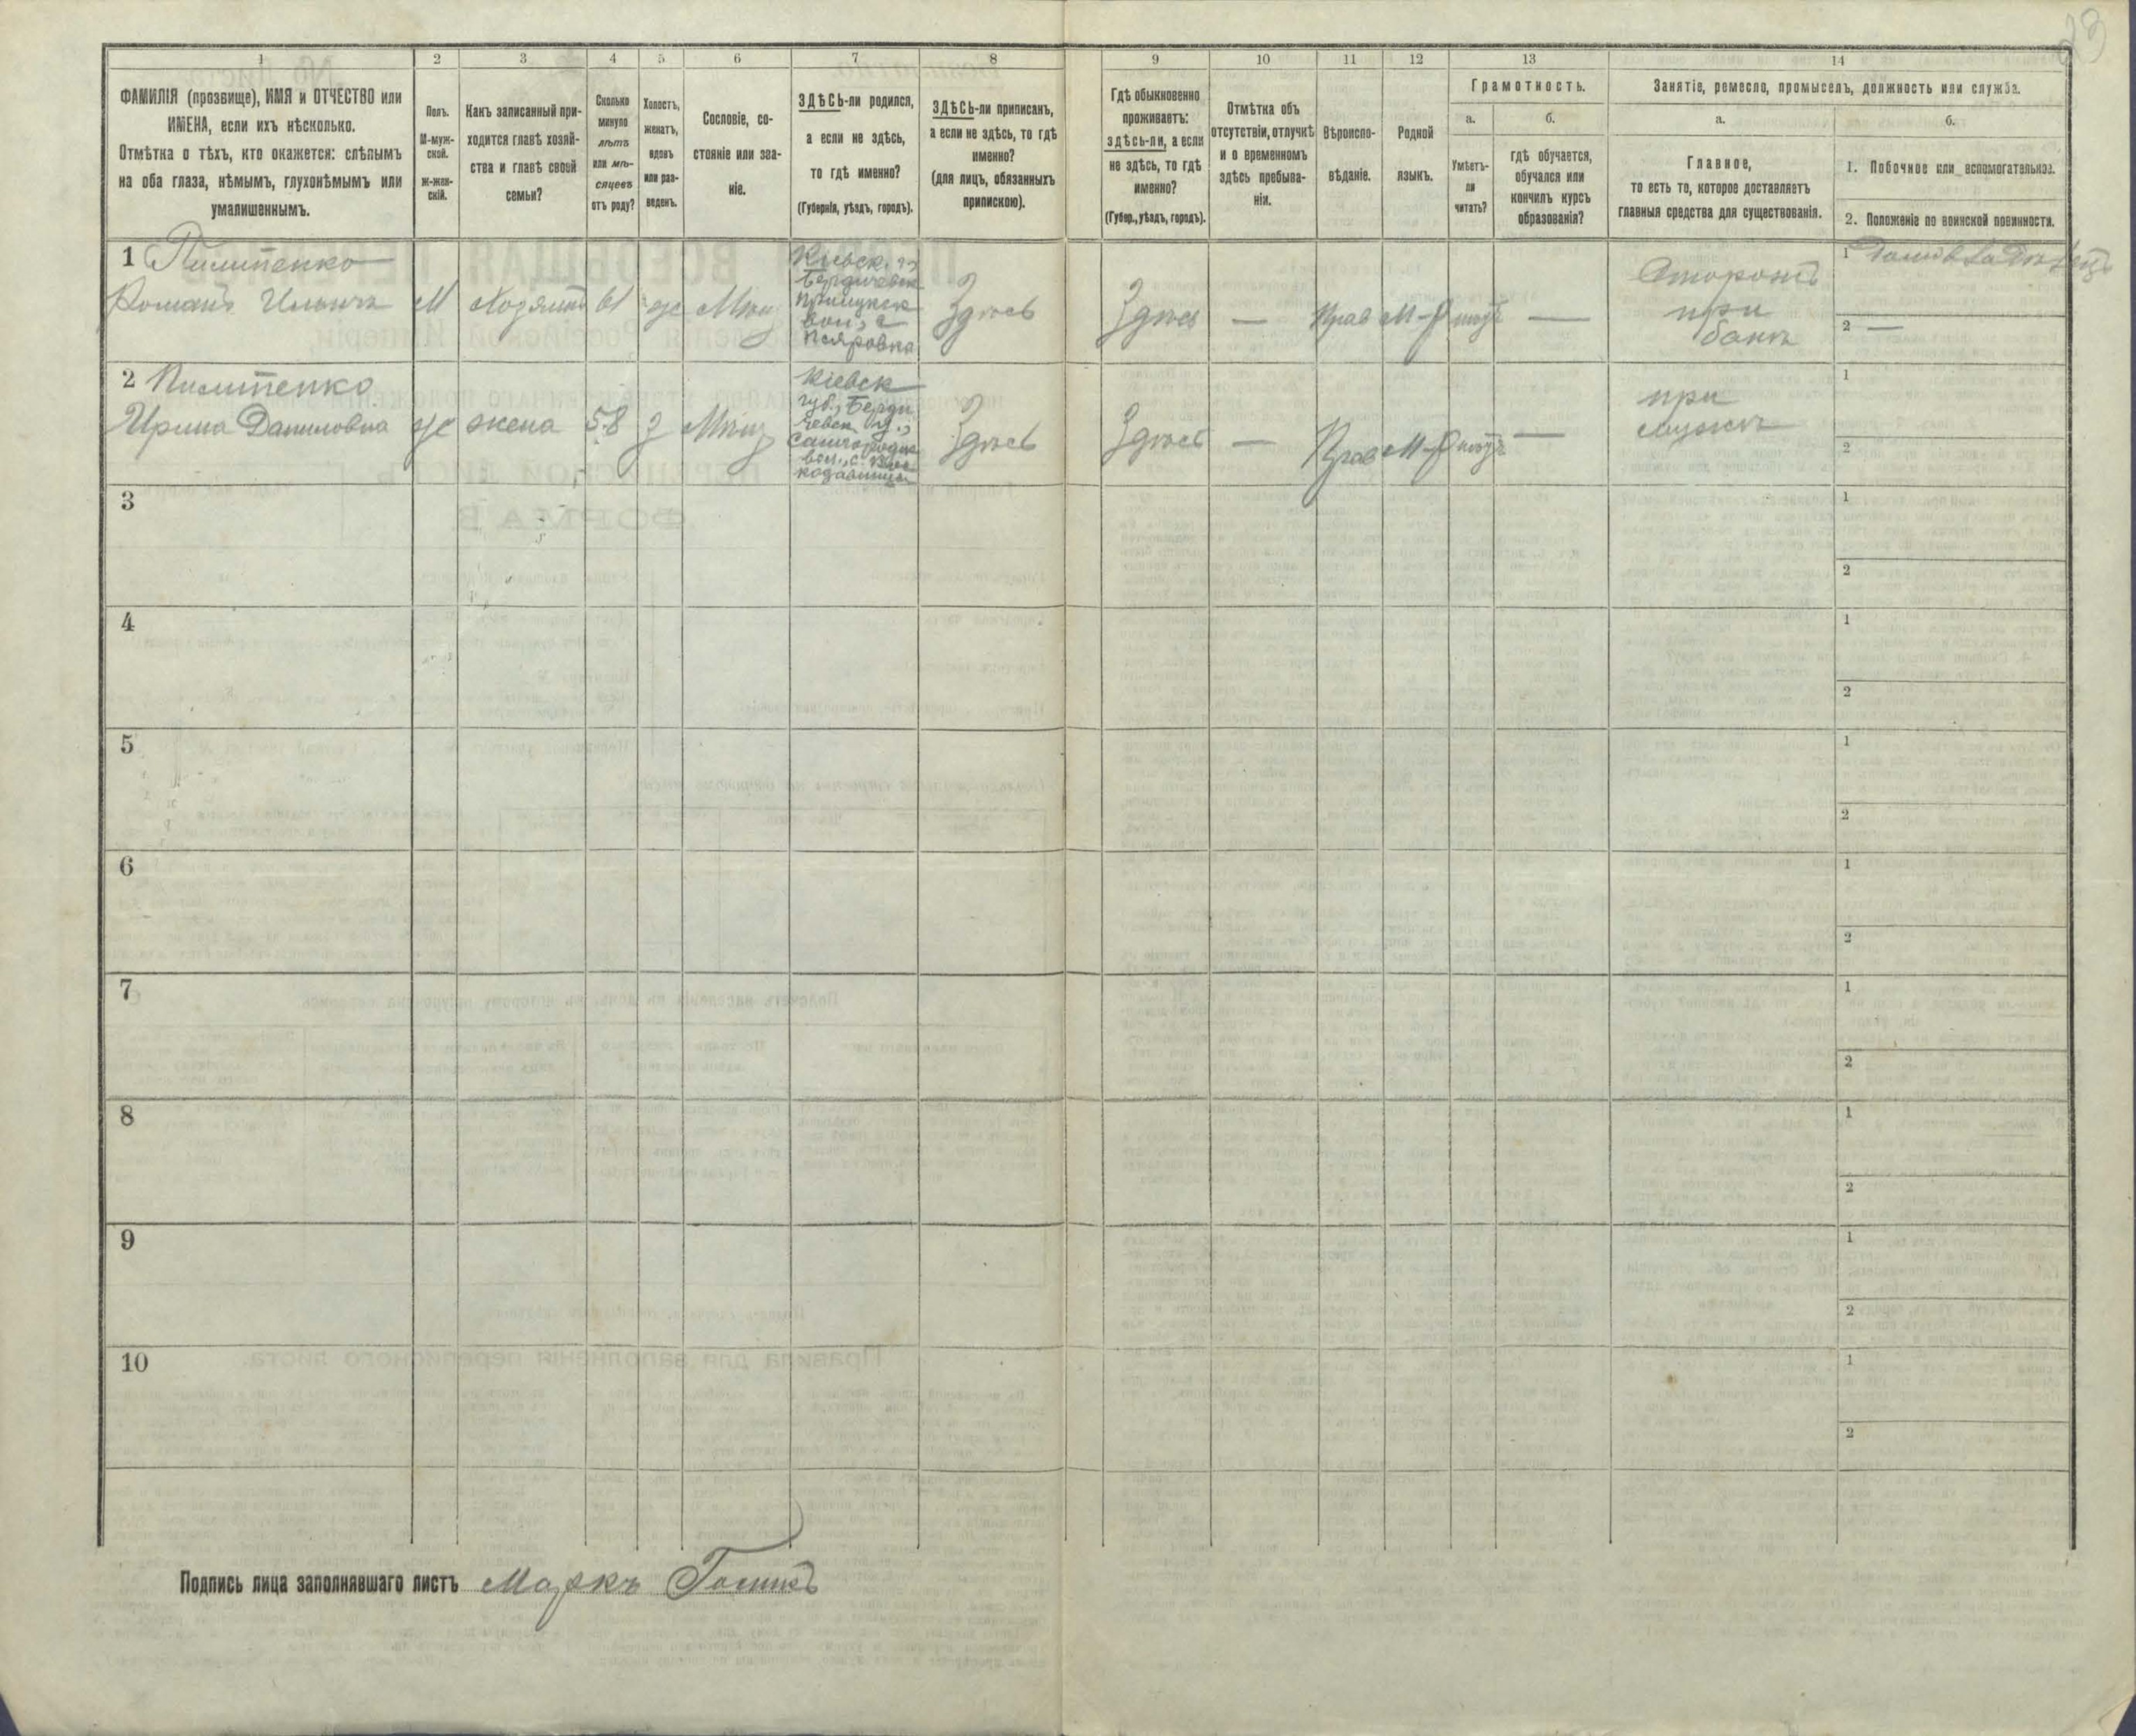 23
1
2
3
4
5
6
7
8
9
10
11
12
13
14
ФАМИЛІЯ (прозвище), ИМЯ и ОТЧЕСТВО или
ИМЕНА, если ихъ нѣсколько.
Отмѣтка о тѣхъ, кто окажется: слѣпымъ
на оба глаза, нѣмымъ, глухонѣмымъ или
умалишеннымъ.
Полъ.
М-муж-
ской.
ж-жен-
скій.
Какъ записанный при-
ходится главѣ хозяй-
ства и главѣ своей
семьи?
Сколько
минуло
лѣтъ
или мѣ-
сяцевъ
отъ роду?
Холостъ,
женатъ,
вдовъ
или раз-
веденъ.
Сословіе, со-
стояніе или зва-
ніе.
ЗДѢСЬ-ли родился,
а если не здѣсь,
то гдѣ именно?
(Губернія, уѣздъ, городъ).
ЗДѢСЬ-ли приписанъ,
а если не здѣсь, то гдѣ
именно?
(для лицъ, обязанныхъ
припискою).
Гдѣ обыкновенно
проживаетъ:
здѣсь-ли, а если
не здѣсь, то гдѣ
именно?
(Губер., уѣздъ, городъ).
Отмѣтка объ
отсутствіи, отлучкѣ
и о временномъ
здѣсь пребыва-
ніи.
Вѣроиспо-
вѣданіе.
Родной
языкъ.
Грамотность.
а.
Умѣетъ-
ли
читать?
б.
гдѣ обучается,
обучался или
кончилъ курсъ
образованія?
Занятіе, ремесло, промыселъ, должность или служба.
а.
Главное,
то есть то, которое доставляетъ
главныя средства для существованія.
б.
1. Побочное или вспомогательное.
2. Положеніе по воинской повинности.
1 Пилипенко
Романъ Ильичъ
М
Хозяинъ
61
ж
Мѣщ
Кіевск. г.,
Бердичевск
вол., с
Здѣсь
Здѣсь
—
Прав
М-Р
—
Сторожъ
при
банѣ
1
2 —
2 Пилипенко
Ирина Даниловна
ж
жена
58
з
Мѣщ
Кіевск
губ., Берди
чевск. у.,
вол., с.
Здѣсь
Здѣсь
—
Прав
М-Р
—
при
мужѣ
1
2
3
1
2
4
1
2
5
1
2
6
1
2
7
1
2
8
1
2
9
1
2
10
1
2
Подпись лица заполнявшаго листъ Маркъ